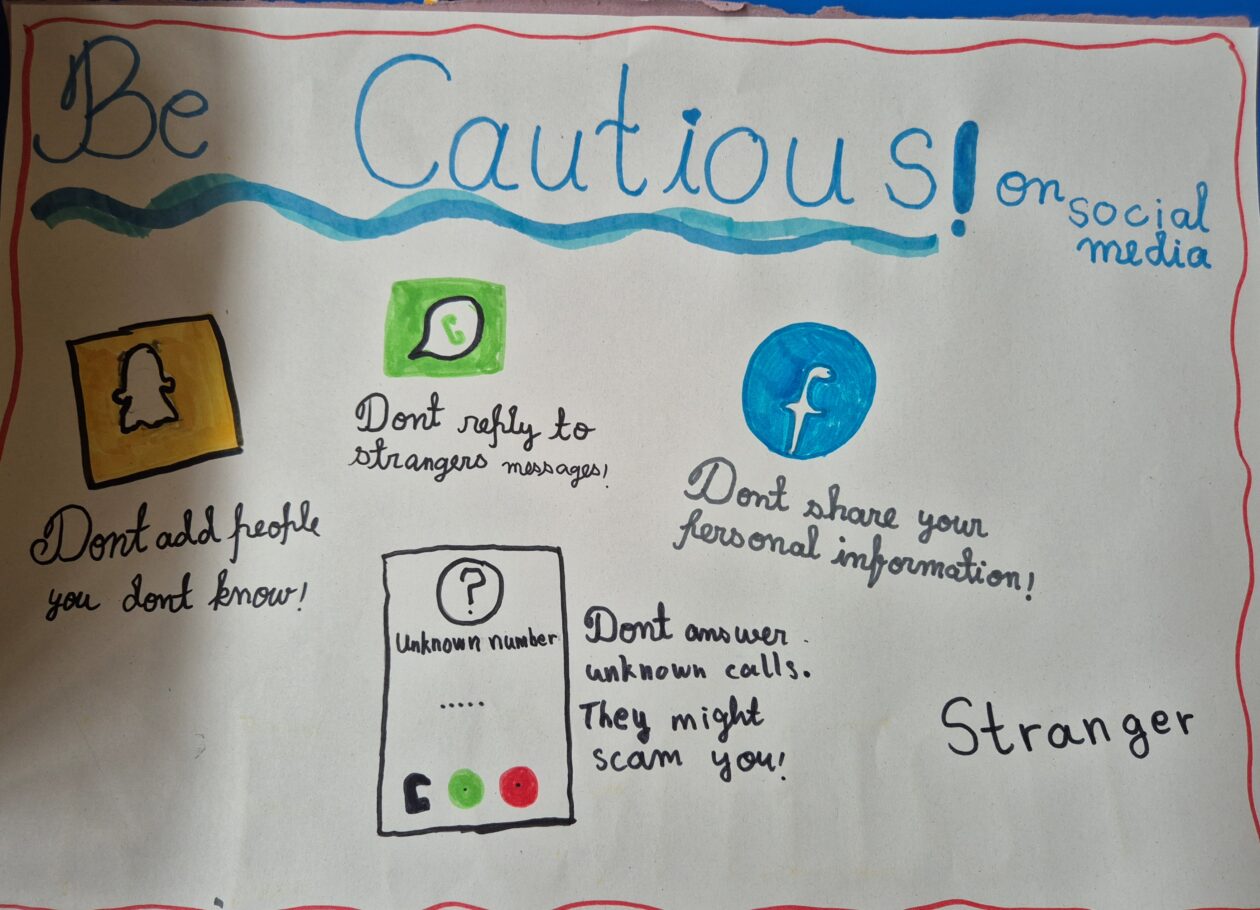 Be Cautious! on social
media
Dont add people
you dont know!
Dont reply to
strangers messages!
Dont share your
personal information!
?
Unknown number
.....
Dont answer
unknown calls.
They might
scam you!
Stranger